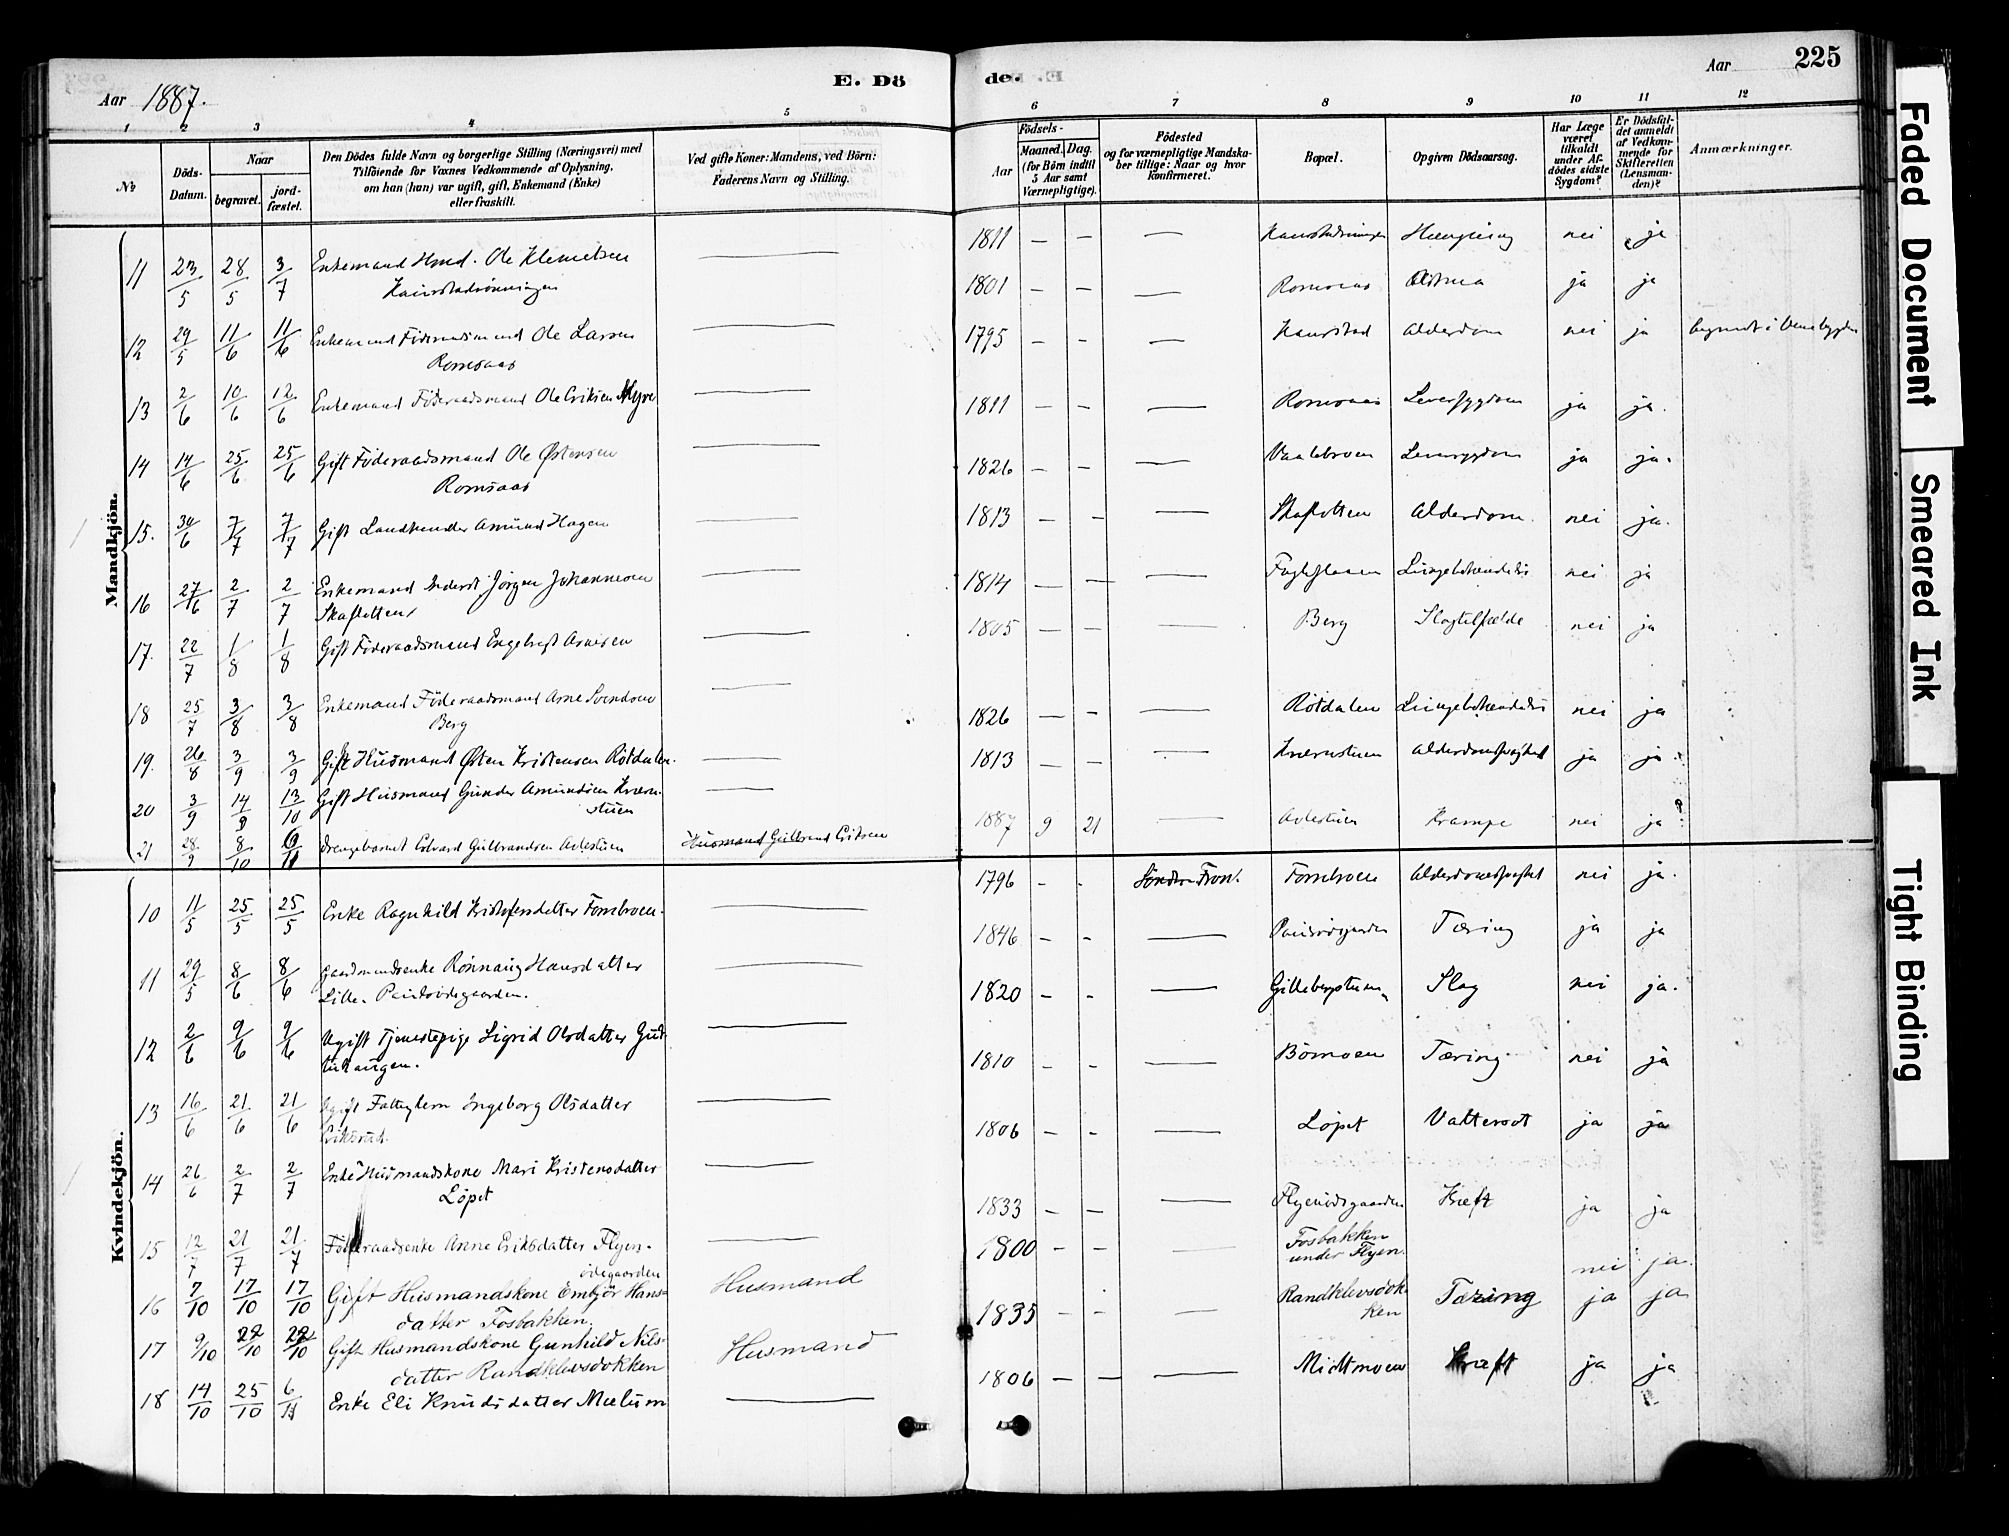 Aar 1887.
E. Dö
1 2 3 4 5
No
Döds-Datum.
Naar
begravet.
jord-fæstet.
Den Dödes fulde Navn og borgerlige Stilling (Næringsvei) med
Tilföiende for Voxnes Vedkommende af Oplysning,
om han (hun) var ugift, gift, Enkemand (Enke)
eller fraskilt.
Ved gifte Koner: Mandens, ved Börn:
Faderens Navn og Stilling.
Mandkjön.
11 23/5 28/5 3/7 Enkemand Hmd. Ole Klemetsen —
12 29/5 11/6 11/6 Enkemand Föderaadsmand Ole Larsen —
Romsaas
13 2/6 10/6 12/6 Enkemand Föderaadsmand Ole Eriksen Myre —
14 14/6 25/6 25/6 Gift Föderaadsmand Ole Østensen —
Romsaas
15. 30/6 7/7 7/7 Gift Landhandler Amund Hagen —
16 27/6 2/7 2/7 Enkemand Inderst Jörgen Johannesen —
Skaflotten
17. 22/7 1/8 1/8 Gift Föderaadsmand Engebregt Arnesen —
18 25/7 3/8 3/8 Enkemand Föderaadsmand Arne Svendsen —
Berg
19. 26/8 3/9 3/9 Gift Husmand Østen Kristensen Rötdalen. —
20 3/9 14/9 13/10 Gift Husmand Gunder Amundsen Kværn- —
stuen
21 28/9 8/10 Drengebarnet Edvard Gulbrandsen Avlestuen Husmand Gulbrand Eriksen
Kvindekjön.
10 11/5 25/5 25/5 Enke Ragnhild Kristofersdatter Formbroen. —
11 29/5 8/6 8/6 Gaardmandsenke Rönnaug Hansdatter —
Lille-
12 2/6 9/6 9/6 Ugift Tjenestepige Sigrid Olsdatter —
13 16/6 21/6 21/6 Ugift Fattiglem Ingeborg Olsdatter —
Eriksrud.
14 26/6 2/7 2/7 Enke Husmandskone Mari Kristensdatter —
Löpet
15 12/7 21/7 21/7 Föderaadsenke Anne Eriksdatter Flyen- —
ödegaarden
16 7/10 17/10 17/10 Gift Husmandskone Embjör Hans- Husmand
datter Fosbakken.
17 9/10 22/10 22/10 Gift Husmandskone Gunhild Nils- Husmand
datter Randklevsdokken
18 14/10 25/10 6/11 Enke Eli Knudsdatter Mælum —
de. Aar 225
6 7 8 9 10 11 12
Födsels-
Aar
Maaned. Dag.
(for Börn indtil
5 Aar samt
Værnepligtige).
Födested
og for værnepligtige Mandska-
ber tillige: Naar og hvor
konfirmeret.
Bopæl.
Opgiven Dödsaarsag.
Har Læge
været
tilkaldt
under Af-
dödes sidste
Sygdom?
Er Dödsfal-
det anmeldt
af Vedkom-
mende for
Skifteretten
(Lensman-
den)?
Anmærkninger.
1811 — — — nei ja
1801 — — — Romsaas ja ja
1795 — — — Kaurstad Alderdom nei ja
1811 — — — Romsaas Leversygdom ja ja.
1826 — — — Vaalebroen Leversygdom ja ja.
1813 — — — Skaflotten Alderdom. nei ja.
1814 — — — Lungebetændelse nei ja
1805 — — — Berg Slagtilfælde nei ja
1826 — — — Rötdalen Lungebetændelse nei ja
1813 — — — Kværnstuen Alderdomssvaghed ja ja
1887 9 21 — Avlestuen Krampe nei ja
1796 - - Söndre Fron. Formbroen Alderdomssvaghed nei ja.
1846 - - — Tæring ja ja
1820 - - — Slag nei ja.
1810 - - — Bömoen Tæring. nei ja
1806 - - — Löpet Vattersot ja ja
1833 — — — Flyenödegaarden Kræft ja ja
1800 — — — Fosbakken
under Flyen. nei ja.
1835 — — — Randklevsdok-
ken Tæring ja ja
1806 — — — Midtmoen Kræft ja ja
Faded Document
Smeared Ink
Tight Binding